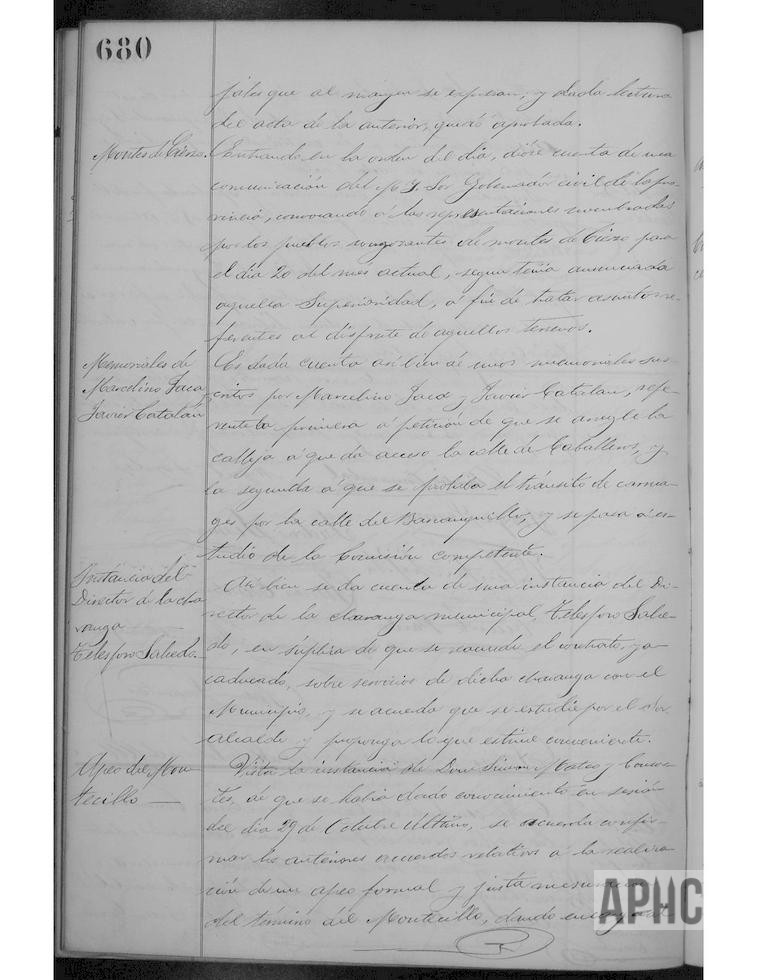 680
jales que al margen se expresan, y dada lectura
del acta de la anterior, quedó aprobada.
Montes de Cierzo.
Entrando en la orden del día, dióse cuenta de una
comunicación del M. I. Sor Gobernador civil de la pro-
vincia, convocando á las representaciones nombradas
por los pueblos congozantes del montes de Cierzo para
el día 20 del mes actual, segun tenía anunciada
aquella Superioridad, á fin de tratar asuntos re-
ferentes al disfrute de aquellos terrenos.
Memoriales de
Marcelino Jaca y
Javier Catalán
Es dada cuenta asi bien de unos memoriales sus-
critos por Marcelino Jaca y Javier Catalan, refe-
rente la primera á petición de que se arregle la
calleja á que da acceso la calle de Caballeros, y
la segunda á que se prohiba el tránsito de carrua-
ges por la calle del Barranquillo, y se pasa á es-
tudio de la Comisión competente.
Instancia del
Director de la cha
ranga
Telesforo Salcedo.
Asi bien se da cuenta de una instancia del Di-
rector de la charanga municipal, Telesforo Salce-
do, en súplica de que se reanude el contrato, ya
caducado, sobre servicios de dicha charanga con el
Municipio, y se acuerda que se estudie por el Sor
Alcalde y proponga lo que estime conveniente.
Apeo del Mon-
tecillo
Vista la instancia de Don Simon Mateo y Consor-
tes, de que se habia dado conocimiento en sesión
del dia 29 de Octubre último, se acuerda confir-
mar los anteriores acuerdos relativos á la realiza-
ción de un apeo formal y justa mesuracion
del término del Montecillo, dando
APHC